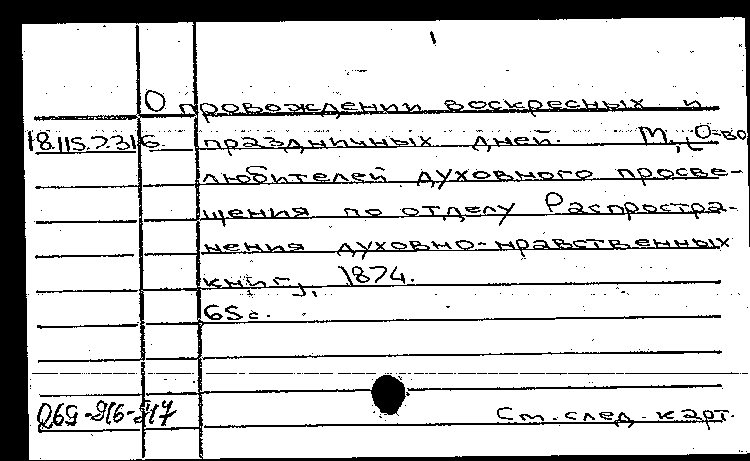 О провождении воскресных и
18.115.7.316 праздничных дней. М., [О-во
любителей духовного просве-
щения по отделу Распростра-
нения духовно-нравственных
книг], 1874.
65 с.
069-816-817 См. след. карт.